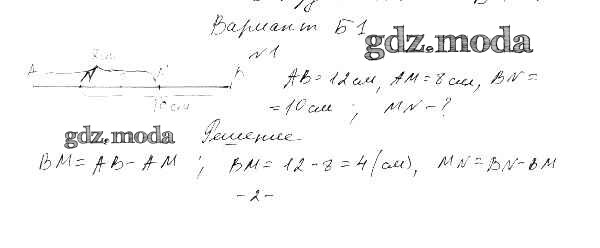 Вариант Б1
gdz.moda
N1
8 см
A M N B
10 см
AB = 12 см, AM = 8 см, BN =
= 10 см ; MN - ?
gdz.moda Решение.
BM = AB - AM ; BM = 12 - 8 = 4 (см), MN = BN - BM
- 2 -